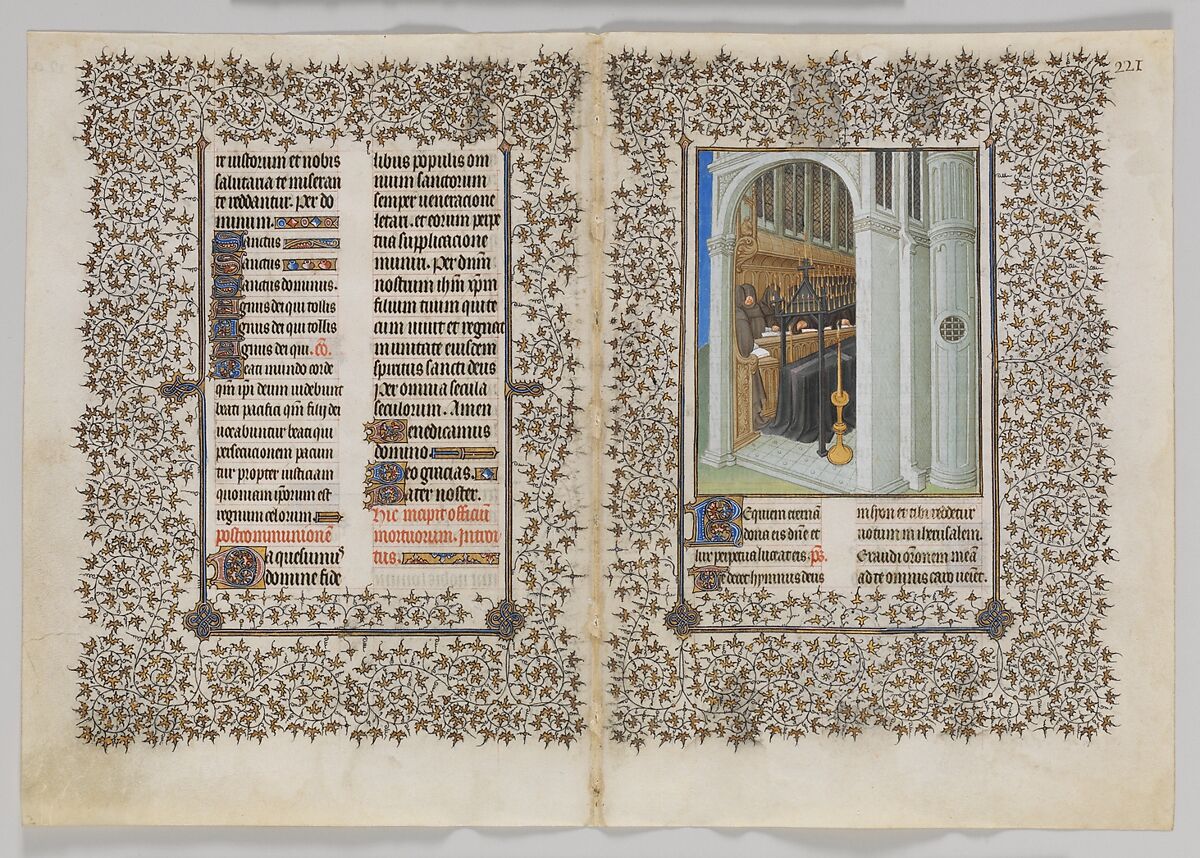 te iustorum et nobis
salutaria te miseran
te reddantur. Per do
minum.
Sanctus
Sanctus
Sanctus dominus.
Agnus dei qui tollis
Agnus dei qui tollis
Agnus dei qui. cō.
Beati mundo corde
qm̄ ipi deum uidebunt
beati pacifici qm̄ filij dei
uocabuntur beati qui
persecucionem paciun
tur propter iusticiam
quoniam ip̄orum est
regnum celorum.
postcommunionē
Da quesumus
domine fide
libus populis om
nium sanctorum
semper ueneracione
letari. et eorum perpe
tua supplicacione
muniri. Per dnm̄
nostrum ihm̄ xp̄m
filium tuum qui te
cum uiuit et regnat
in unitate eiusdem
spiritus sancti deus
per omnia secula
seculorum. Amen
Benedicamus
domino
Deo gracias.
Pater noster.
Hic incipit officiū
mortuorum. Introi
tus.
221
Requiem eternā
dona eis dn̄e et
lux perpetua luceat eis. p̄s.
Te decet hymnus deus
in syon et tibi reddetur
uotum in iherusalem.
Exaudi or̄onem meā
ad te omnis caro ueniet.